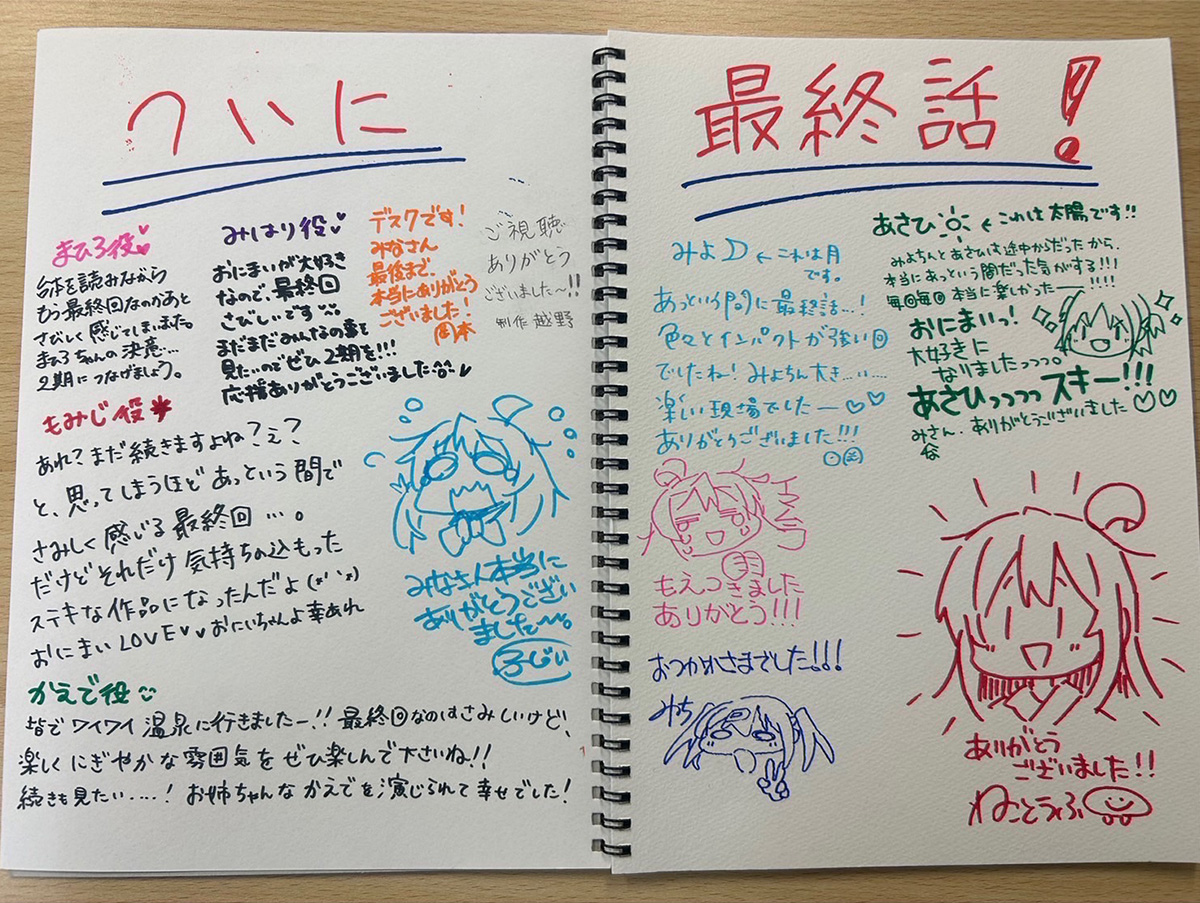 ついに
まひろ役
台本を読みながら
もう最終回なのかあと
さびしく感じてしまいました。
まひろちゃんの決意…
2期につなげましょう。
みはり役
おにまいが大好き
なので、最終回
さびしいです
まだまだみんなの事を
見たいのでぜひ2期を!!!
応援ありがとうございました
デスクです!
みなさん
最後まで、
本当にありがとう
ございました!
岡本
ご視聴
ありがとう
ございました〜!!
制作 越野
もみじ役
あれ?まだ続きますよね?え?
と、思ってしまうほどあっという間で
さみしく感じる最終回…。
だけどそれだけ気持ちの込もった
ステキな作品になったんだよ
おにまいLOVE♥♥おにいちゃんよ幸あれ
みなさん本当に
ありがとうござい
ました〜。
ふじい
かえで役
皆でワイワイ温泉に行きましたー!!最終回なのはさみしいけど、
楽しくにぎやかな雰囲気をぜひ楽しんで下さいね!!
続きも見たい....!お姉ちゃんなかえでを演じられて幸せでした!
最終話!
みよ ←これは月
です。
あっという間に最終話…!
色々とインパクトが強い回
でしたね!みよちん大き……
楽しい現場でしたー♡♡
ありがとうございました!!!
あさひ ←これは太陽です!!
みよちんとあさひは途中からだったから、
本当にあっという間だった気がする!!!
毎回毎回本当に楽しかったー!!!!
おにまいっ!
大好きに
なりましたっっっ。
あさひっっっっスキー!!!
みさん、ありがとうございました♡♡
もえつきました
ありがとう!!!
おつかれさまでした!!!
みち
ありがとう
ございました!!
ねことうふ